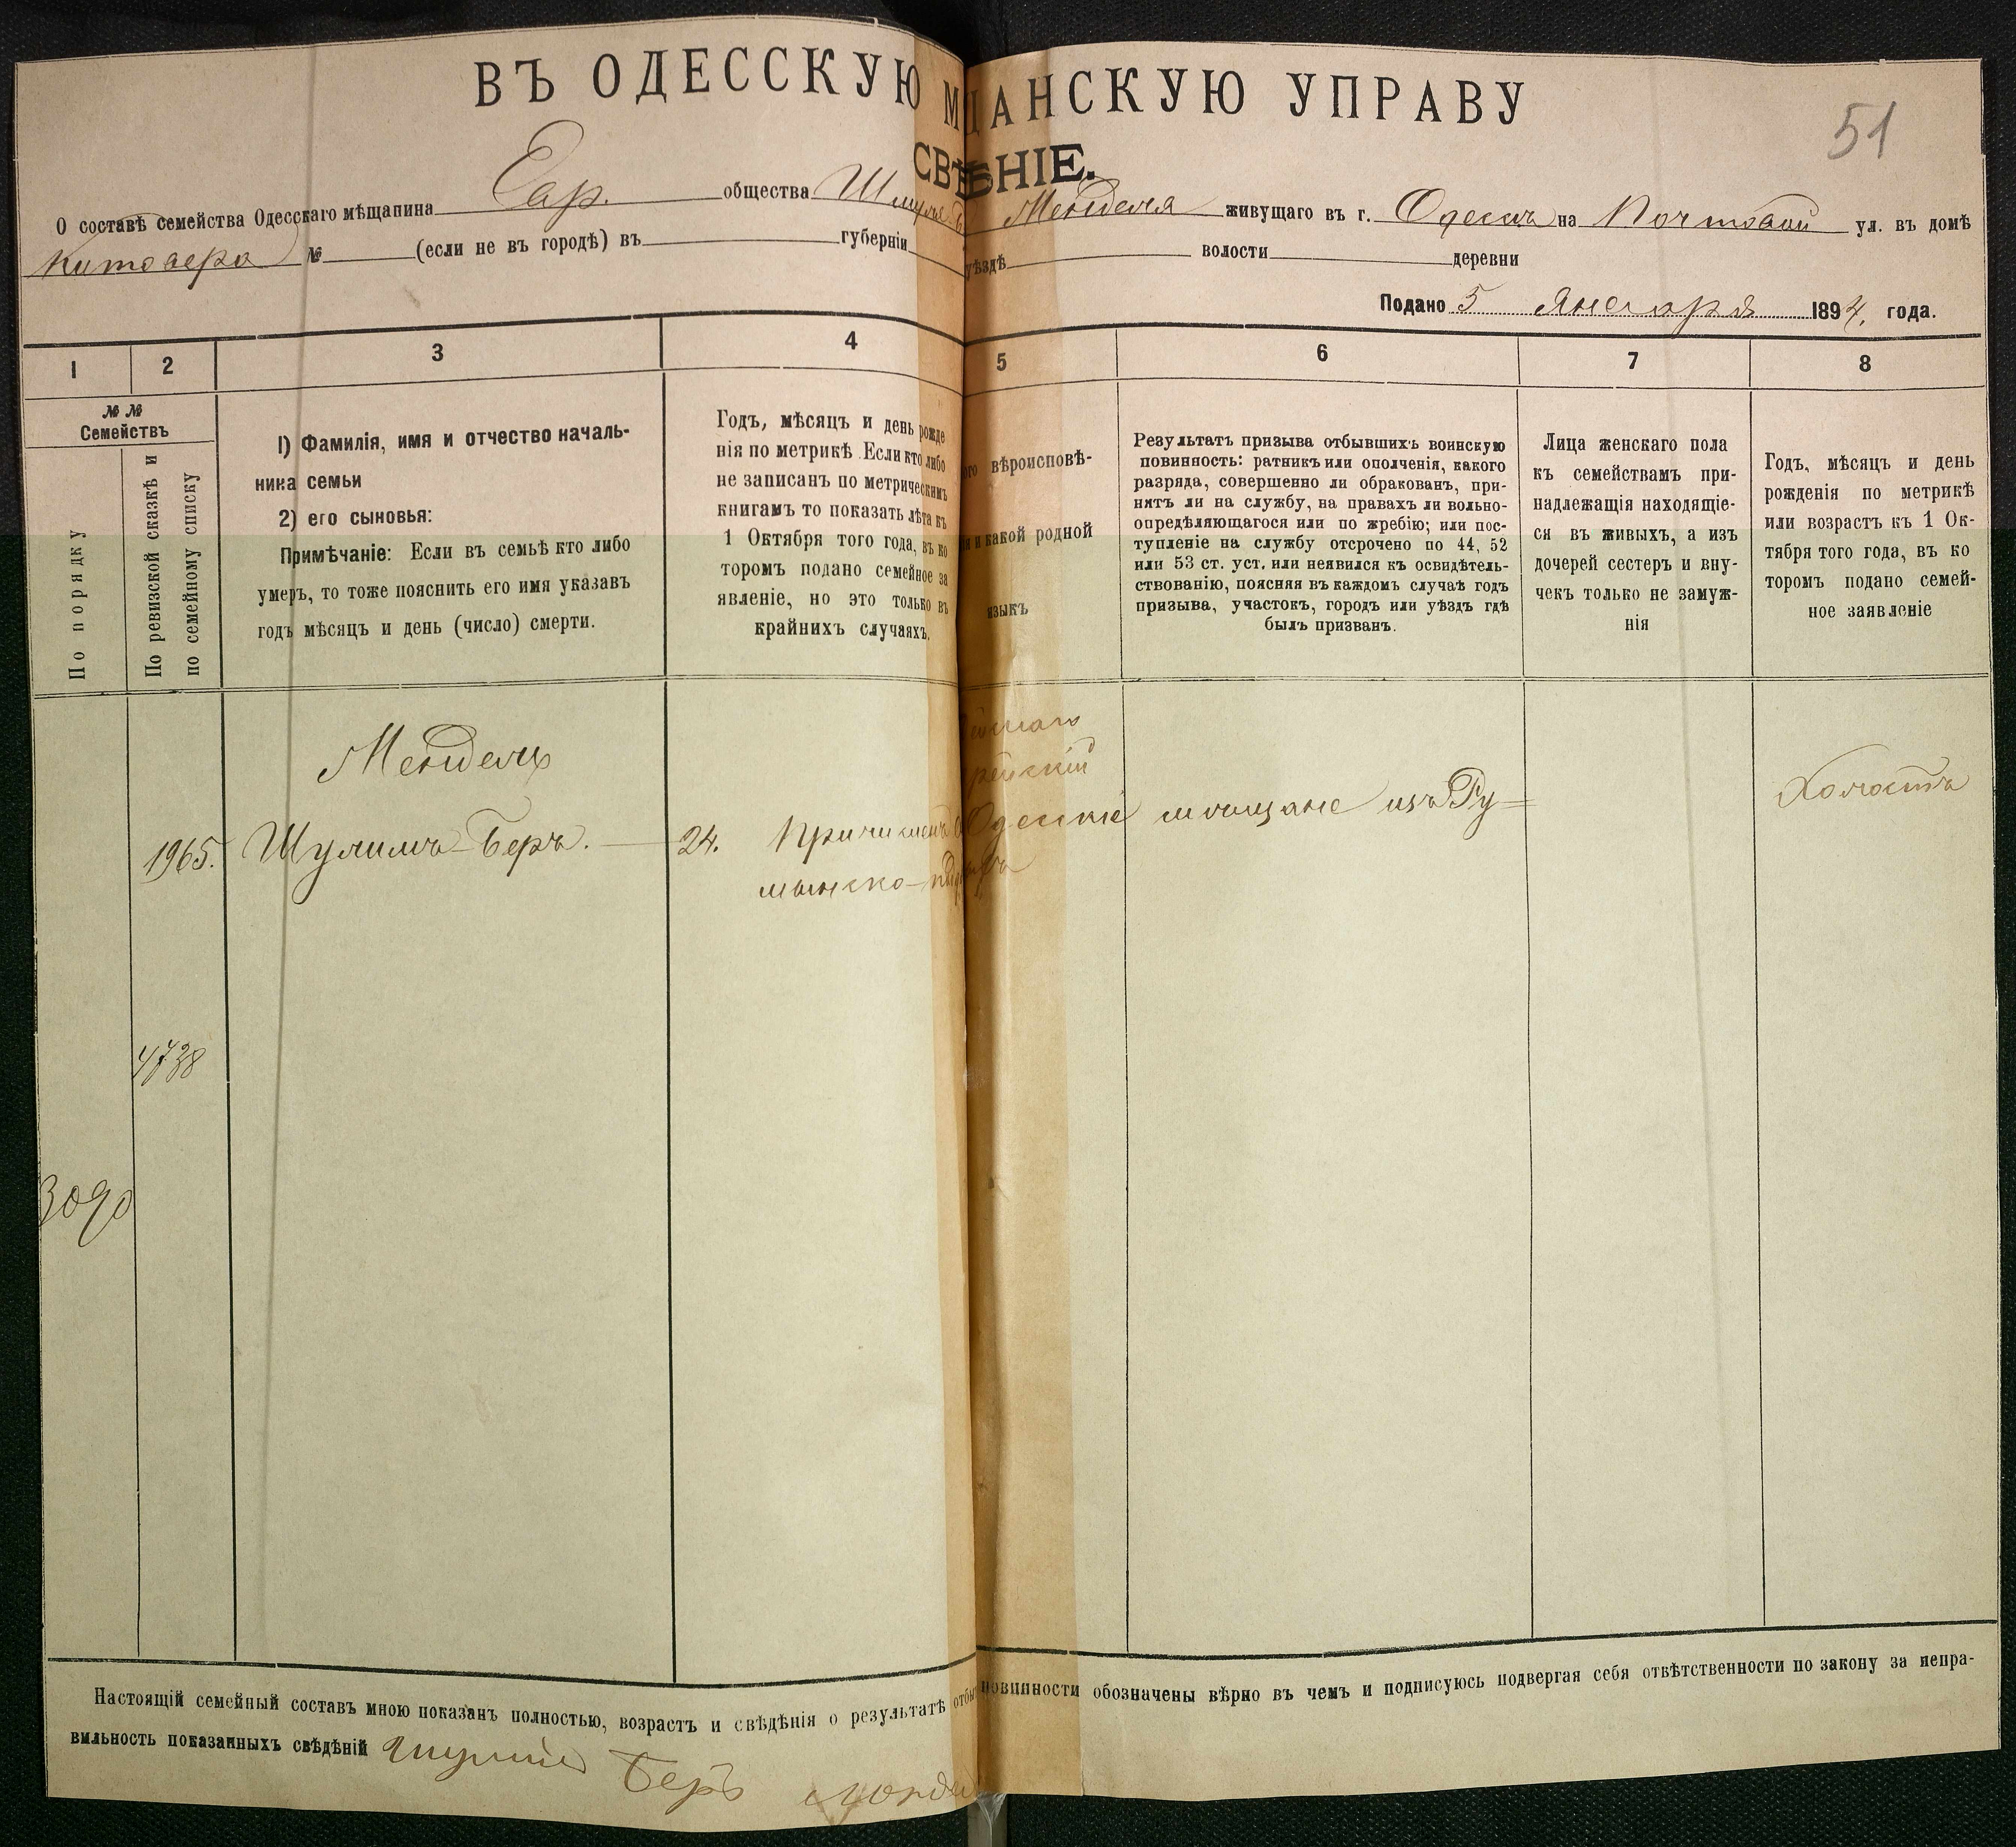 ВЪ ОДЕССКУЮ М ЩАНСКУЮ УПРАВУ
51
СВѢ ЕНІЕ.
О составѣ семейства Одесскаго мѣщанина Евр. общества Шмуля Менделя живущаго въ г. Одессѣ на Почтовой ул. въ домѣ
Китовера № (если не въ городѣ) въ губерніи уѣздѣ волости деревни
Подано 5 Января 1894. года.
1 2 3 4 5 6 7 8
№ №
Семействъ
По порядку
По ревизской сказкѣ и
по семейному списку
1) Фамилія, имя и отчество началь-
ника семьи
2) его сыновья:
Примѣчаніе: Если въ семьѣ кто либо
умеръ, то тоже пояснить его имя указавъ
годъ мѣсяцъ и день (число) смерти.
Годъ, мѣсяцъ и день рожде
нія по метрикѣ Если кто либо
не записанъ по метрическимъ
книгамъ то показать лѣта къ
1 Октября того года, въ ко
торомъ подано семейное за
явленіе, но это только въ
крайнихъ случаяхъ.
ого вѣроисповѣ-
и какой родной
языкъ
Результатъ призыва отбывшихъ воинскую
повинность: ратникъ или ополченія, какого
разряда, совершенно ли обракованъ, при-
нятъ ли на службу, на правахъ ли вольно-
опредѣляющагося или по жребію; или пос-
тупленіе на службу отсрочено по 44, 52
или 53 ст. уст. или неявился къ освидѣтель-
ствованію, поясняя въ каждомъ случаѣ годъ
призыва, участокъ, городъ или уѣздъ гдѣ
былъ призванъ.
Лица женскаго пола
къ семействамъ при-
надлежащія находящіе-
ся въ живыхъ, а изъ
дочерей сестеръ и вну-
чекъ только не замуж-
нія
Годъ, мѣсяцъ и день
рожденія по метрикѣ
или возрастъ къ 1 Ок-
тября того года, въ ко
торомъ подано семей-
ное заявленіе
Мендель
рейскій
Холостъ
1965. Шулимъ-Беръ. — 24. Причисленъ Одесскіе мѣщане изъ Ру=
мынско-
4738
3090
Настоящій семейный составъ мною показанъ полностью, возрастъ и свѣдѣнія о результатѣ отбы повинности обозначены вѣрно въ чемъ и подписуюсь подвергая себя отвѣтственности по закону за непра-
вильность показанныхъ свѣдѣній Шулим
Беръ